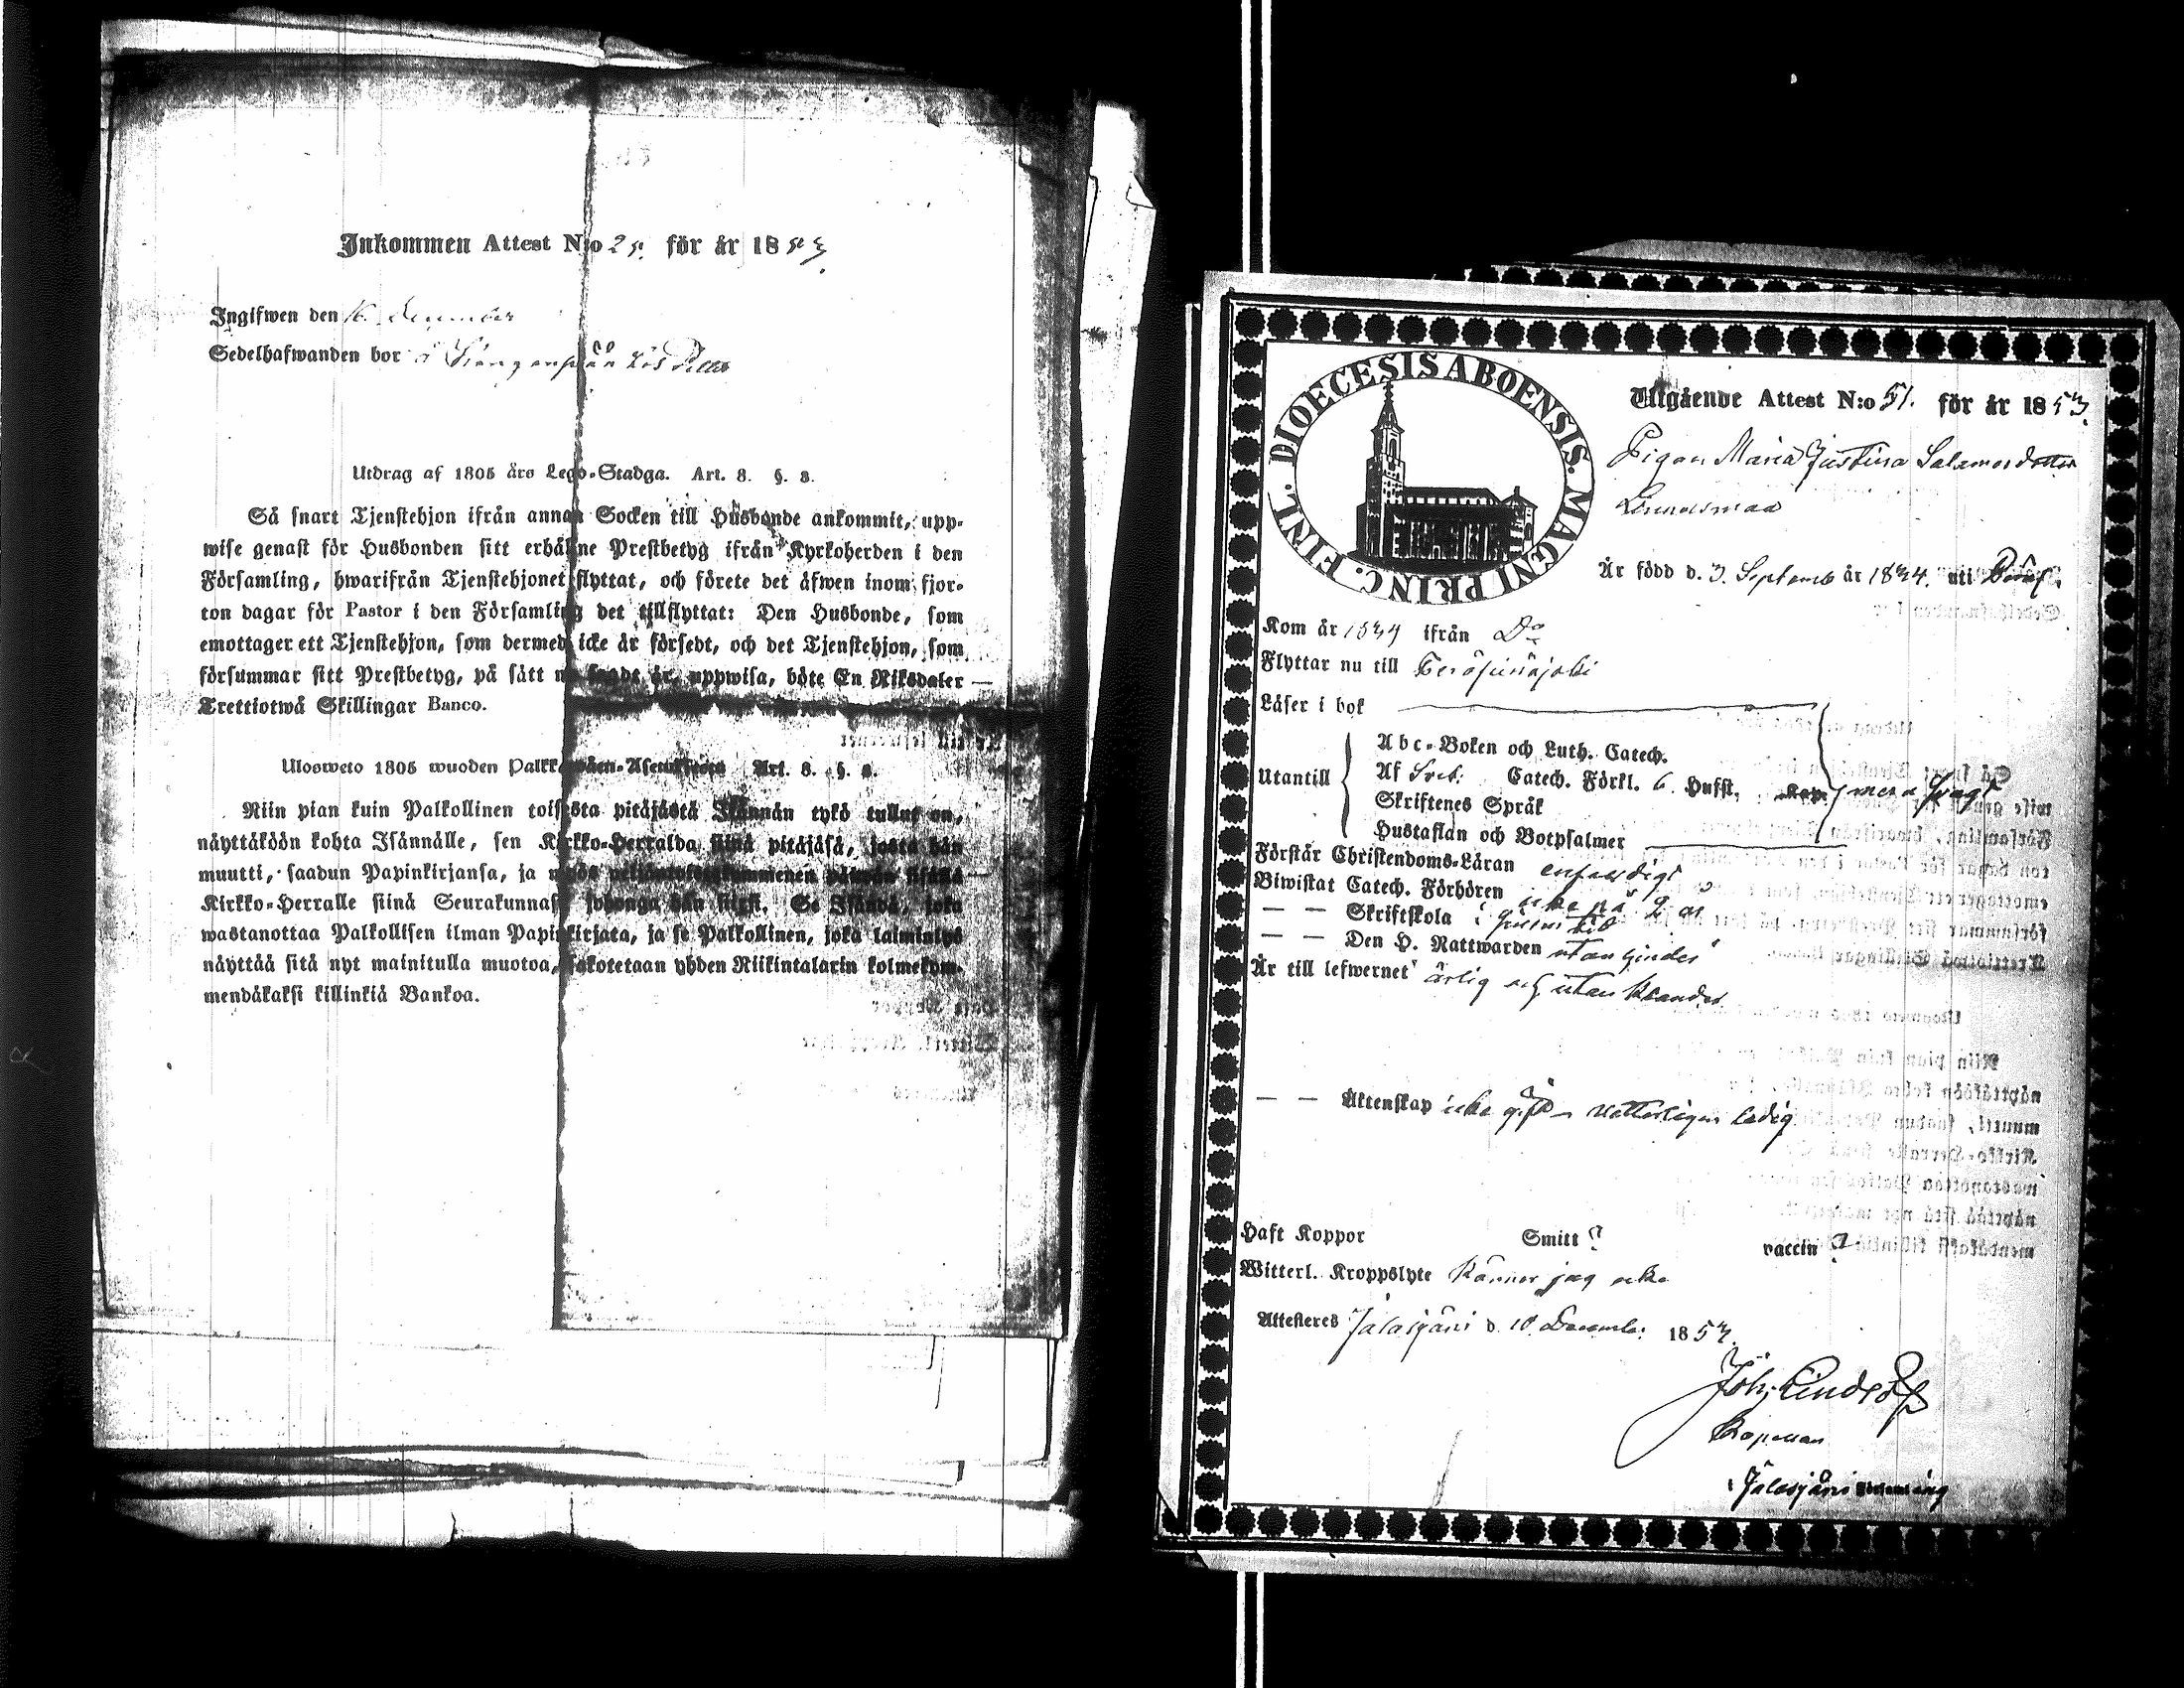 Inkommen Attest N:o 25. för år 1853.
Ingifwen den 16. December
Sedelhafwanden bor
Utdrag af 1805 års Lego-Stadga. Art. 8. §. 8.
Så snart Tjenstehjon ifrån annan Socken till Husbonde ankommit, upp-
wise genast för Husbonden sitt erhållne Prestbetyg ifrån Kyrkoherden i den
Församling, hwarifrån Tjenstehjonet flyttat, och förete det äfwen inom fjor-
ton dagar för Pastor i den Församling det tillflyttat: Den Husbonde, som
emottager ett Tjenstehjon, som dermed icke är försedt, och det Tjenstehjon, som
försummar sitt Prestbetyg, på sätt nu sagdt är, uppwisa, böte En Riksdaler
Trettiotwå Skillingar Banco.
Ulosweto 1805 wuoden Palkkawäen-Asetuksesta Art. 8. §. 8.
Niin pian kuin Palkollinen toisesta pitäjästä Isännän tykö tullut on,
näyttäköön kohta Isännälle, sen Kirkko-Herralda siinä pitäjäsä, josta hän
muutti, saadun Papinkirjansa, ja myös neljäntoistakymmenen päiwän sisällä
Kirkko-Herralle siinä Seurakunnasa, johonga hän siirsi. Se Isändä, joka
wastanottaa Palkollisen ilman Papinkirjata, ja se Palkollinen, joka laiminlyö
näyttää sitä nyt mainitulla muotoa, sakotetaan yhden Riikintalarin kolmekym-
mendäkaksi killinkiä Bankoa.
DIOECESIS ABOENSIS. MAGNI PRINC. FINL.
Utgående Attest N:o 51. för år 1853.
Pigan Maria Justina Salomonsdotter
Är född d. 3. Septemb år 1834. uti
Kom år 1834 ifrån Do
Flyttar nu till Peräseinäjoki
Läser i bok
Utantill
Abc-Boken och Luth. Catech.
Af Sveb. Catech. Förkl. 6 Hufst. Kap.
Skriftenes Språk
Hustaflan och Botpsalmer
mera svagt
Förstår Christendoms-Läran enfaldigt
Biwistat Catech. Förhören icke på 2 år
— — Skriftskola i
— — Den H. Nattwarden utan hinder
Är till lefwernet ärlig och utan klander
— — Äktenskap icke gift – vetterligen ledig
Haft Koppor Smitt ? vaccin ?
Witterl. Kroppslyte känner jag icke
Attesteres Jalasjärvi d. 10. December 1853.
Joh. Lindelöf
Kapellan
i Jalasjärvi församling